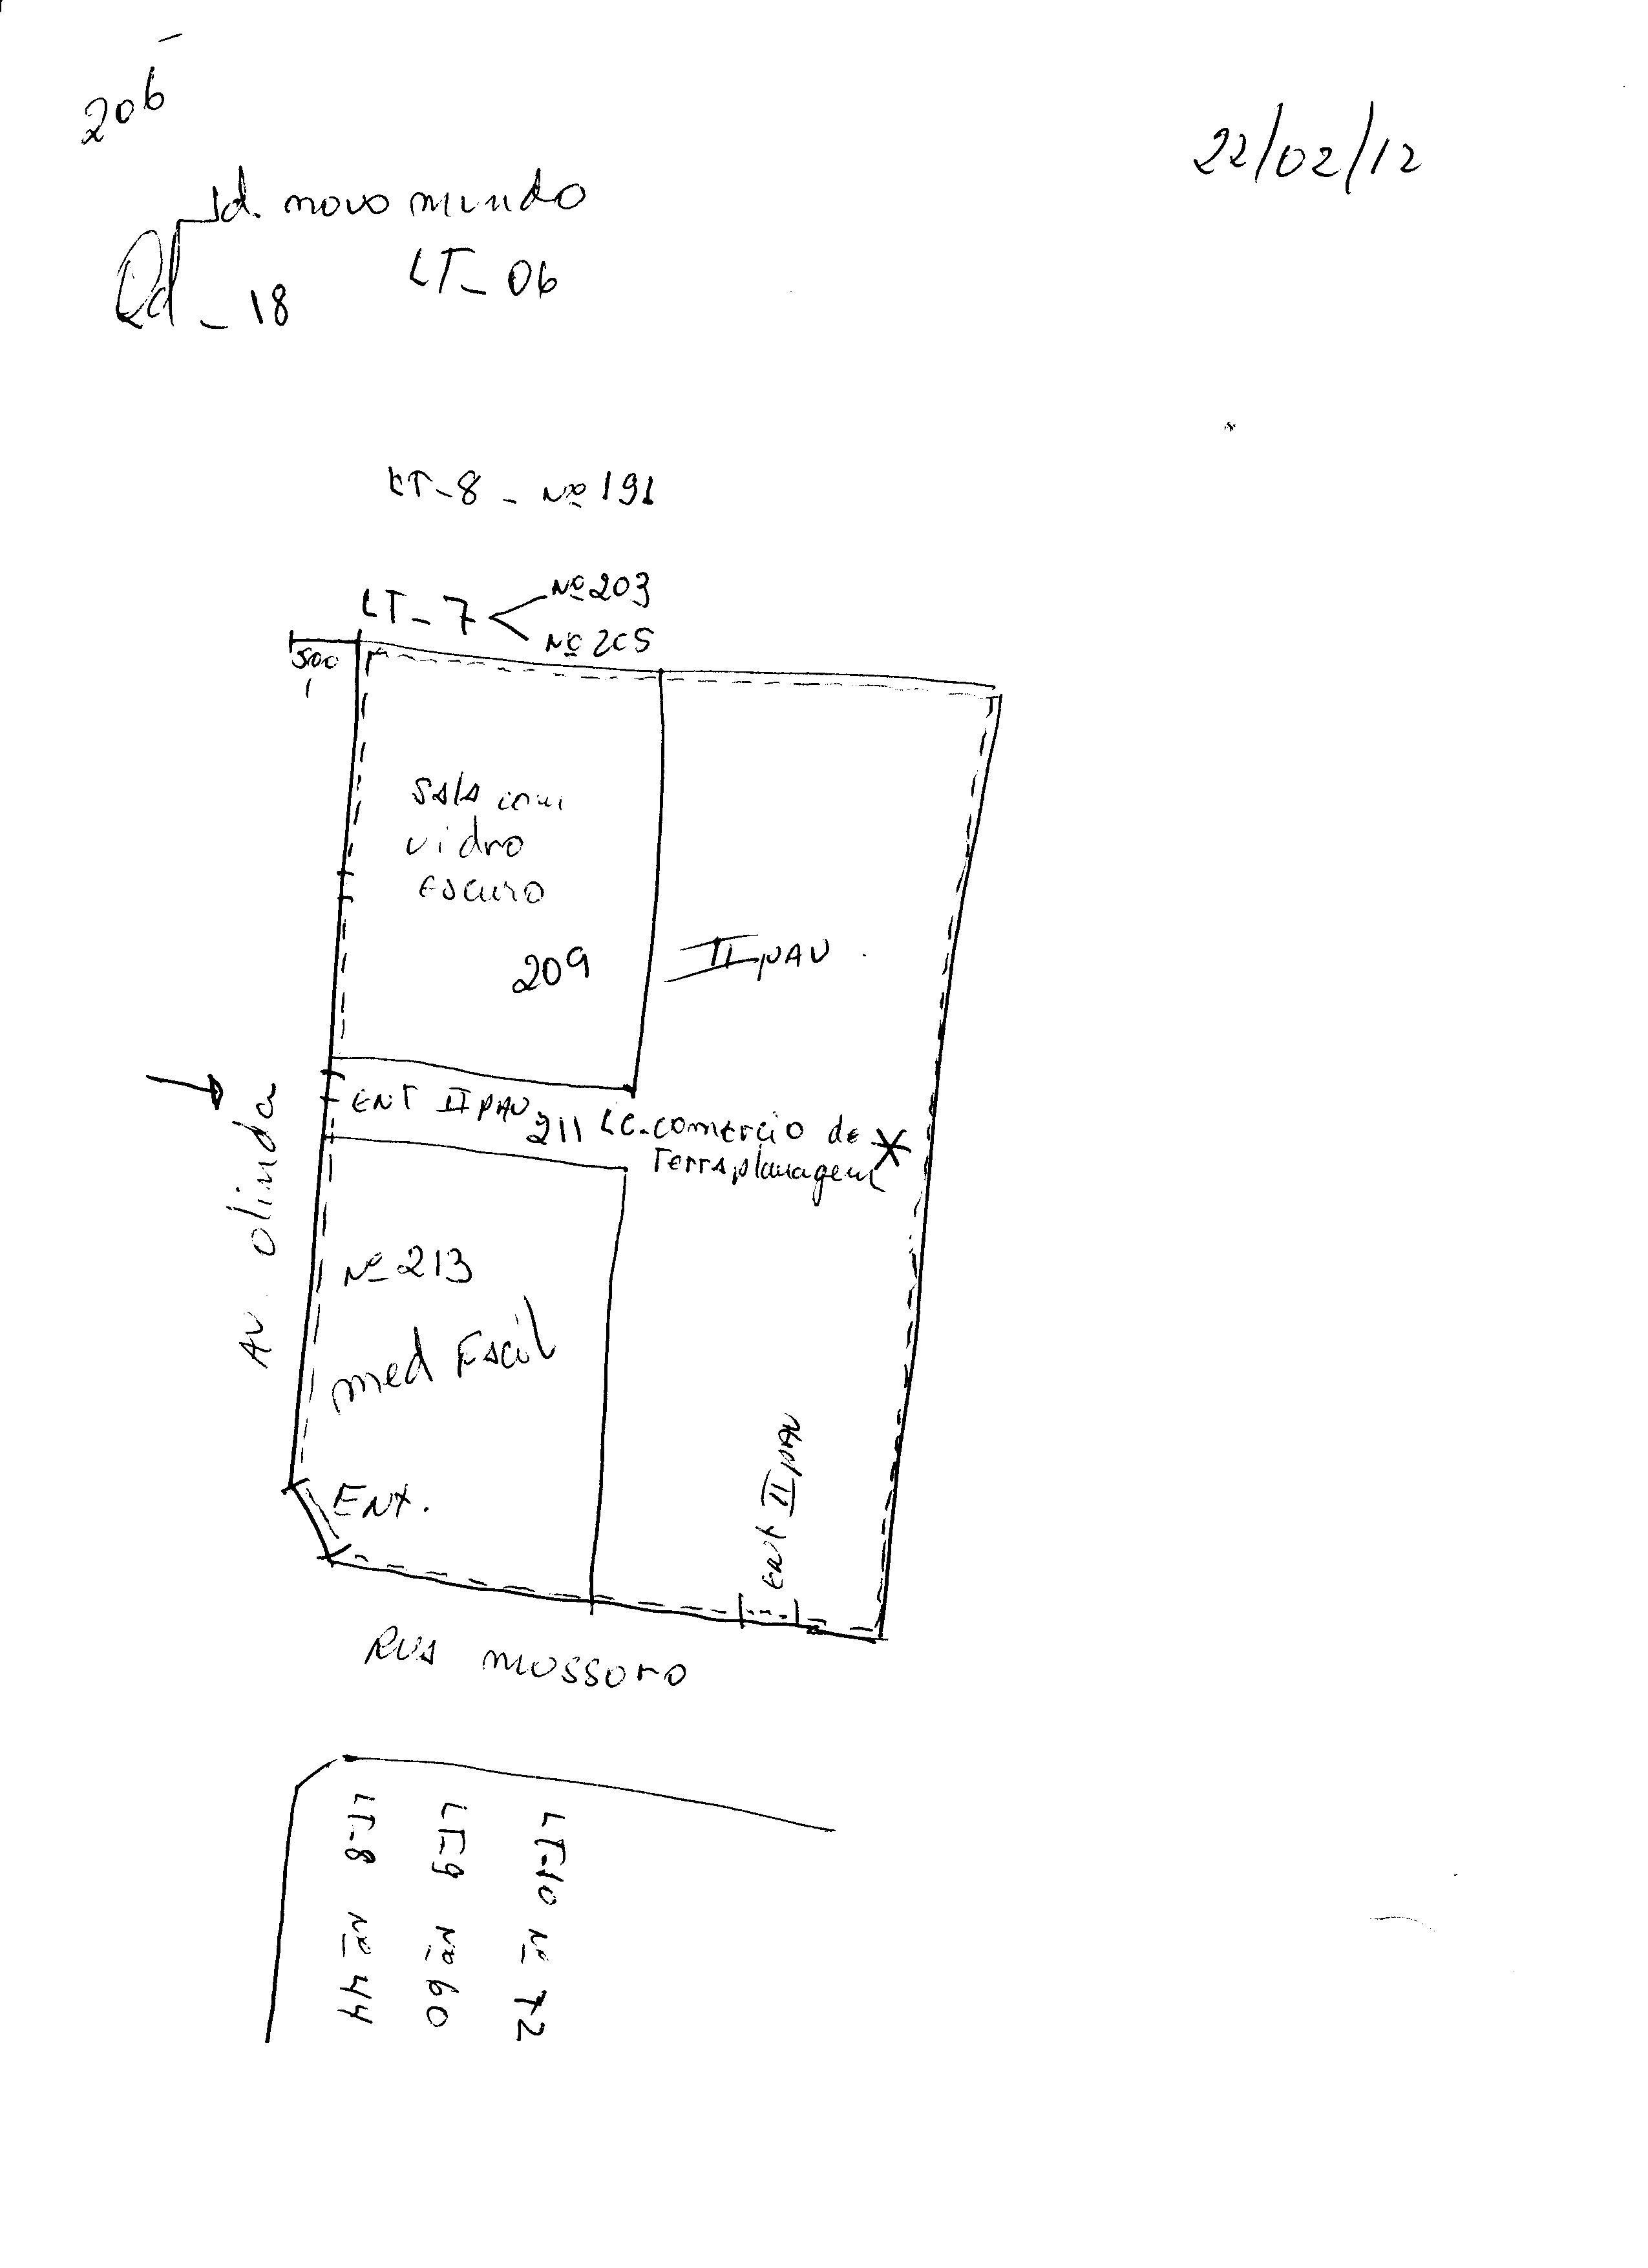 206
22/02/12
Jd. novo mundo
Qd - 18
LT - 06
LT - 8 - Nº 191
LT - 7
Nº 203
Nº 205
500
sala com
vidro
escuro
209
II PAV.
ENT II PAV 211 LC. comercio de
Terraplanagem
Av. Olinda
Nº 213
med Facil
ENT.
ENT II PAV
Rua mossoro
LT-8 Nº 44
LT-9 Nº 60
LT-10 Nº 72